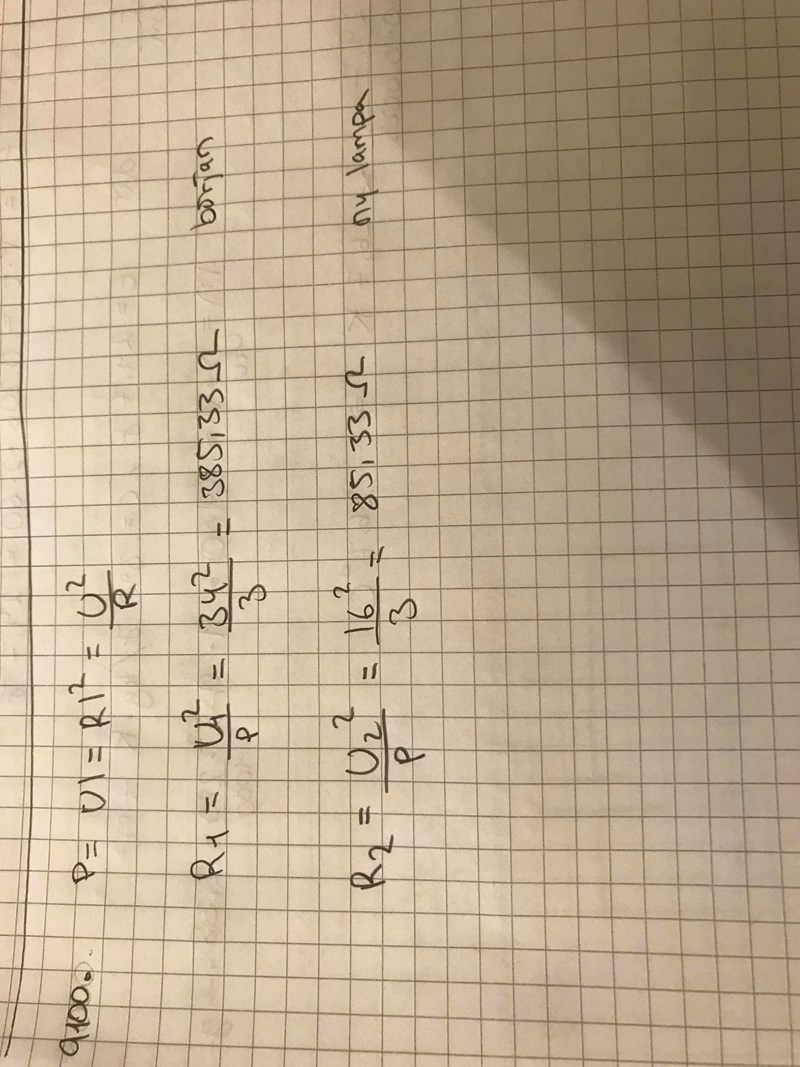 9100. P = UI = RI² = U²/R
R₁ = U₁²/P = 34²/3 = 385,33 Ω början
R₂ = U₂²/P = 16²/3 = 85,33 Ω ny lampa